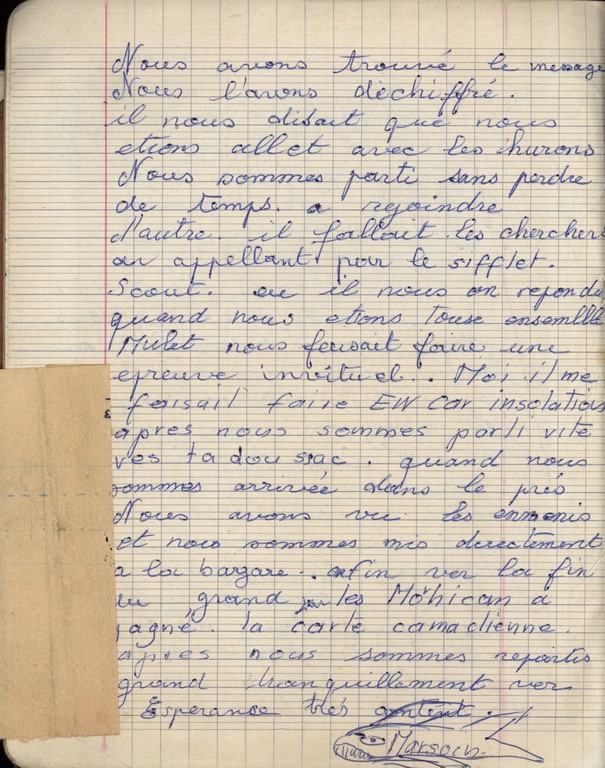 Nous avons trouvé le message
Nous l'avons déchiffré.
il nous disait que nous
etions allet avec les hurons
Nous sommes parti sans perdre
de temps. a rejoindre
d'autre. il fallait les chercher
en appellant par le sifflet.
Scout. ou il nous on repondu
quand nous etions touse ensemble
Mulet nous feusait faire une
epreuve invituel.. Moi il me
faisail faire EW car insolation
apres nous sommes parti vite
ves tadoussac. quand nous
sommes arrivée dans le prés
Nous avons vu les ennenis
et nous sommes mis directement
a la bagare. enfin ver la fin
du grand jeu les Mohican a
gagné. la carte camadienne.
apres nous sommes repartis
grand tranquillement ver
Esperance trés content.
Marsouin.